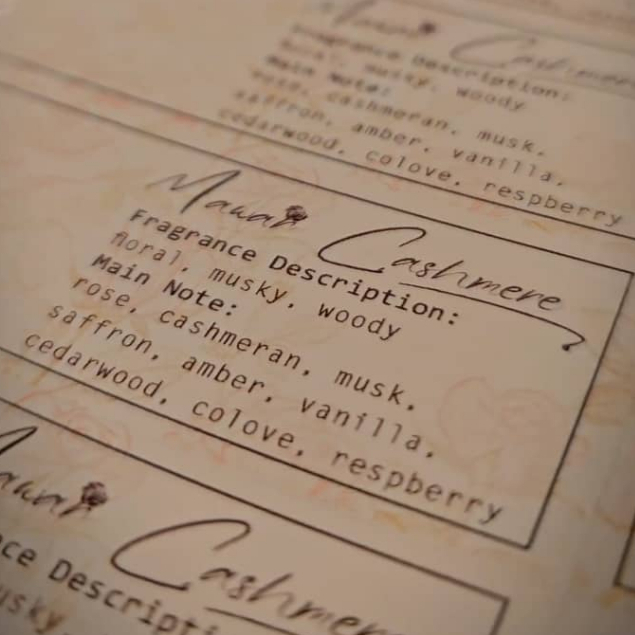 Cashmere
Fragrance Description:
floral, musky, woody
Main Note:
rose, cashmeran, musk,
saffron, amber, vanilla,
cedarwood, colove, respberry
Mawar Cashmere
Fragrance Description:
floral, musky, woody
Main Note:
rose, cashmeran, musk,
saffron, amber, vanilla,
cedarwood, colove, respberry
Cashmere